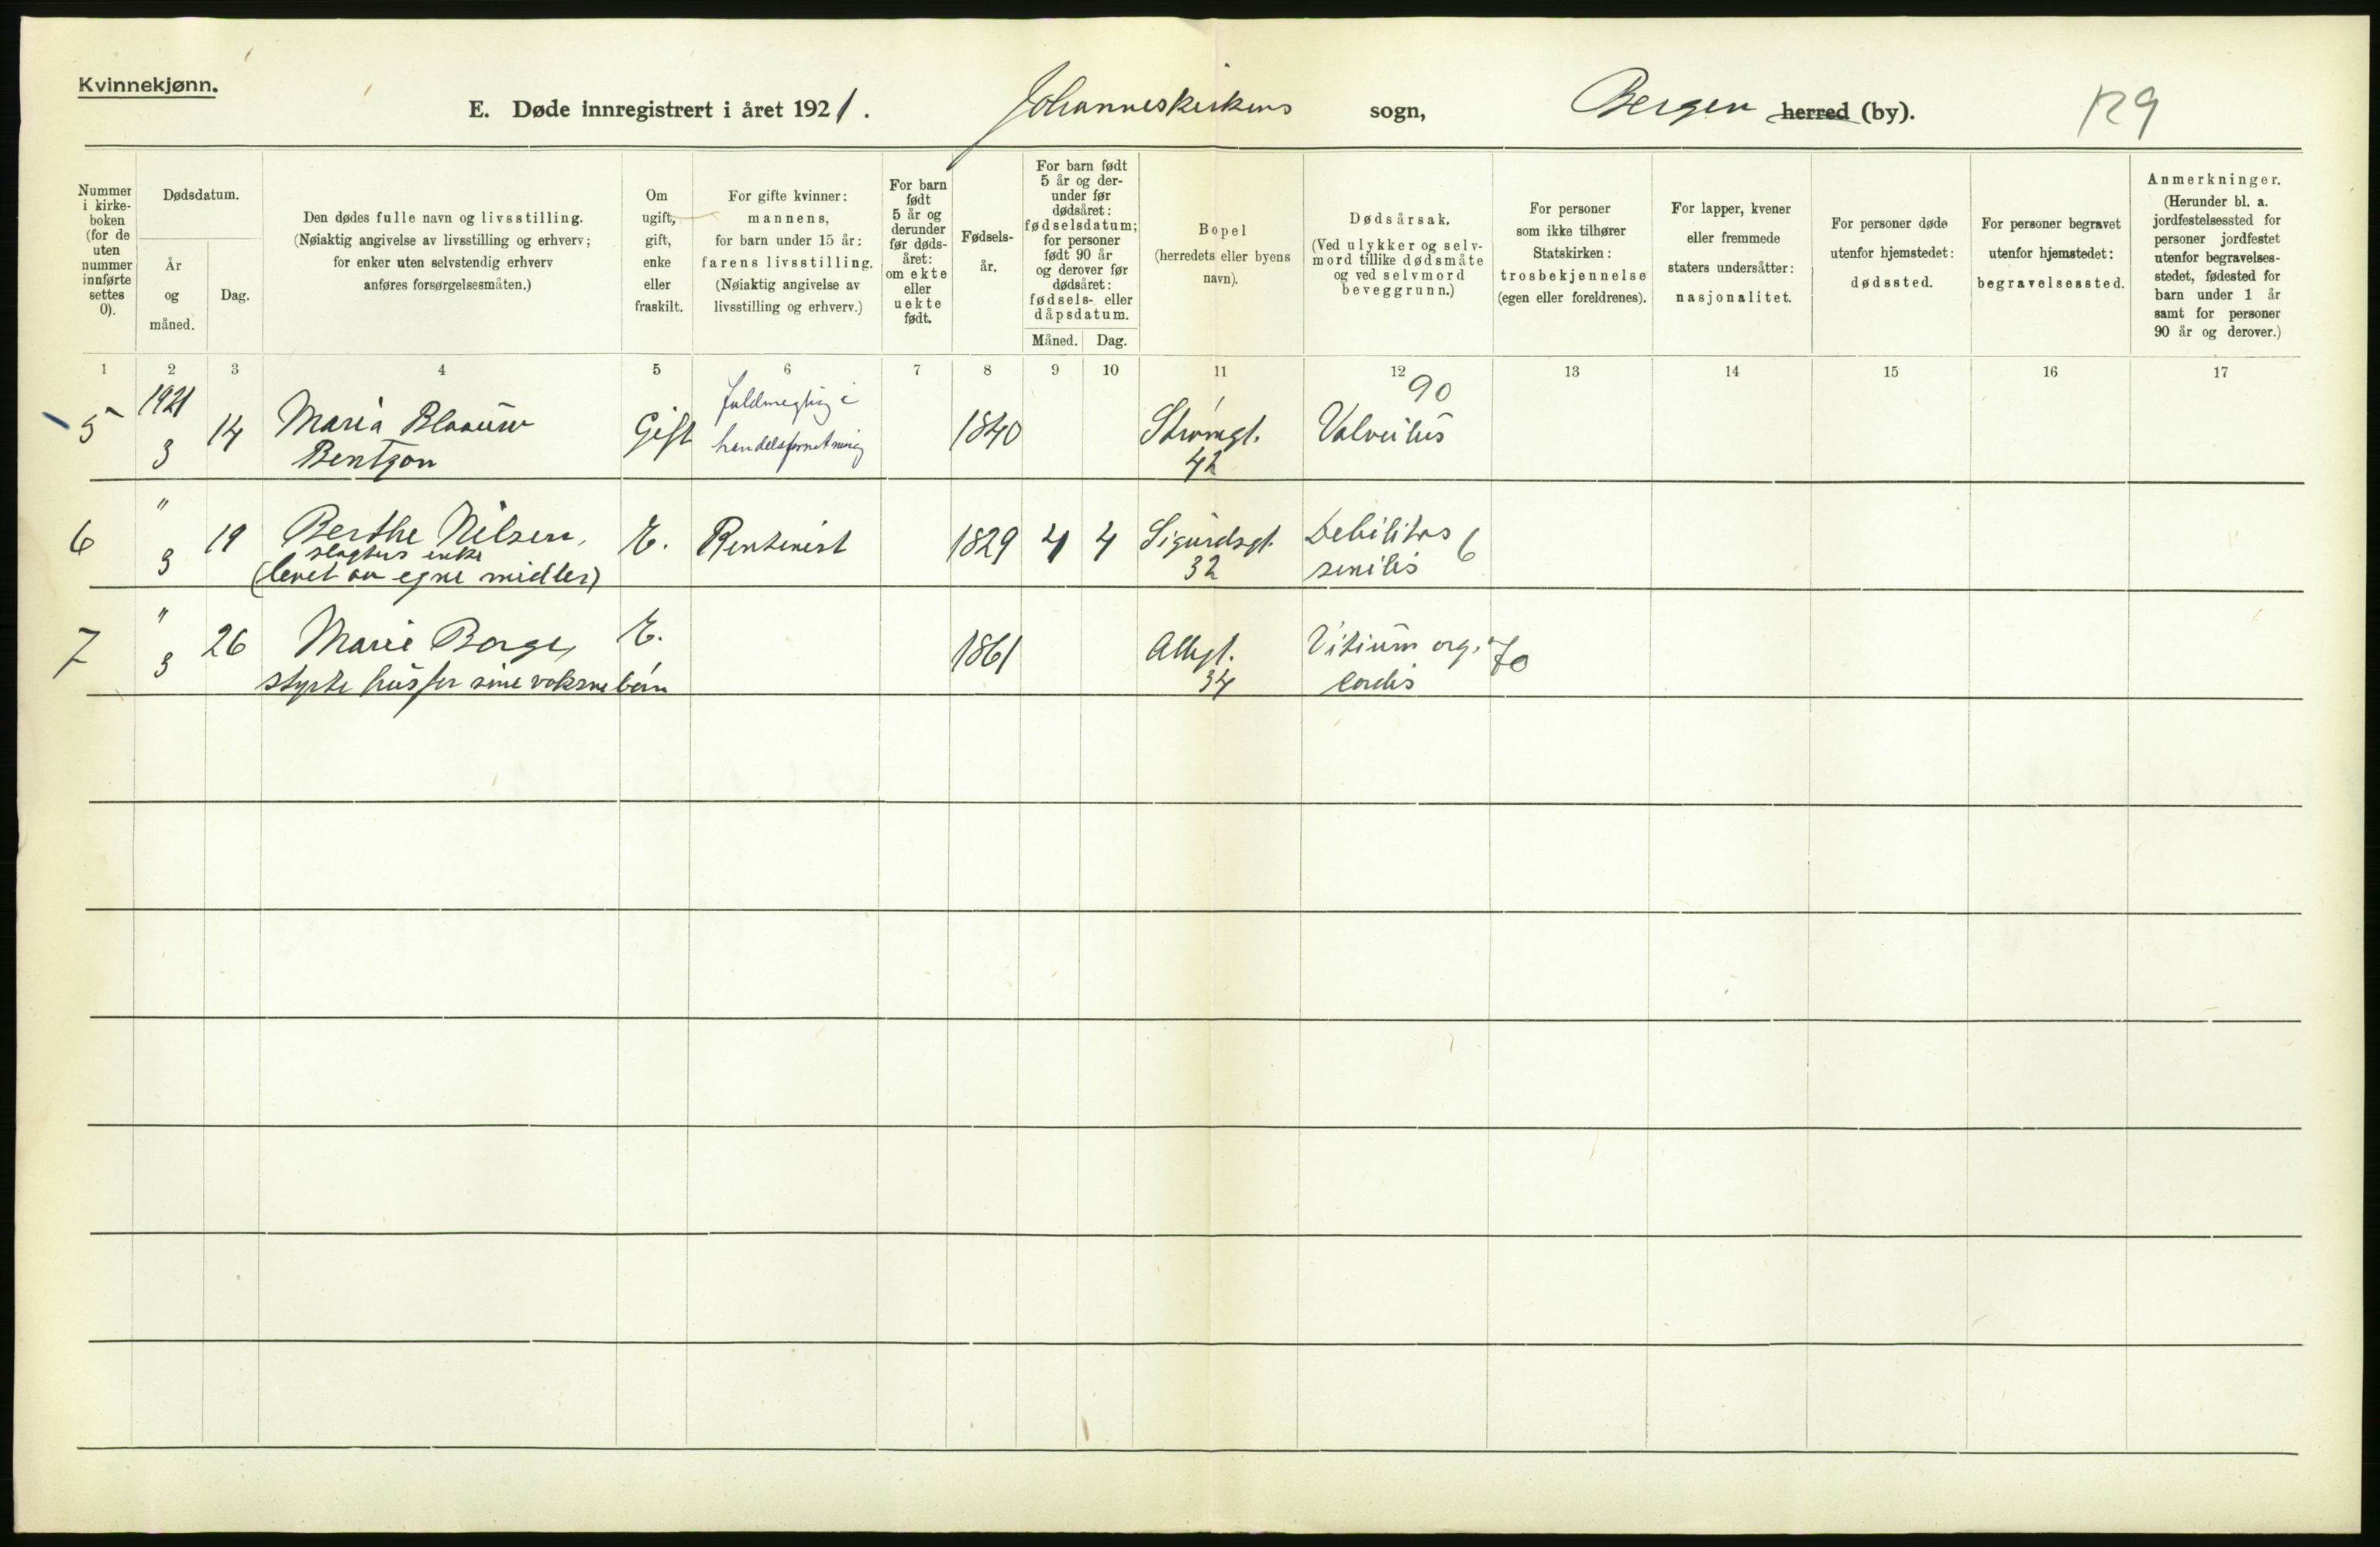 Kvinnekjønn.
E. Døde innregistrert i året 1921. Johanneskirkens sogn, Bergen herred (by). 129
Nummer i kirke-boken (for de uten nummer innførte settes 0).
Dødsdatum.
År og måned.
Dag.
Den dødes fulle navn og livsstilling.
(Nøiaktig angivelse av livsstilling og erhverv;
for enker uten selvstendig erhverv
anføres forsørgelsesmåten.)
Om ugift, gift, enke eller fraskilt.
For gifte kvinner:
mannens,
for barn under 15 år:
farens livsstilling.
(Nøiaktig angivelse av
livsstilling og erhverv.)
For barn født 5 år og derunder før døds-året: om ekte eller uekte født.
Fødsels-år.
For barn født
5 år og der-
under før
dødsåret:
fødselsdatum;
for personer
født 90 år
og derover før
dødsåret:
fødsels- eller
dåpsdatum.
Måned. Dag.
Bopel
(herredets eller byens
navn).
Dødsårsak.
(Ved ulykker og selv-
mord tillike dødsmåte
og ved selvmord
beveggrunn.)
For personer
som ikke tilhører
Statskirken:
trosbekjennelse
(egen eller foreldrenes).
For lapper, kvener
eller fremmede
staters undersåtter:
nasjonalitet.
For personer døde
utenfor hjemstedet:
dødssted.
For personer begravet
utenfor hjemstedet:
begravelsessted.
Anmerkninger.
(Herunder bl. a.
jordfestelsessted for
personer jordfestet
utenfor begravelses-
stedet, fødested for
barn under 1 år
samt for personer
90 år og derover.)
1 2 3 4 5 6 7 8 9 10 11 12 13 14 15 16 17
1921 fuldmegtig i 90
5 3 14 Maria Blaauw Gift handelsforretning 1840 Strømgt. Valvitis
Bentzon 42
"
6 3 19 Berthe Nilsen, E. Rentenist 1829 4 4 Sigurdsgt. Debilitas 6
slagters enke
(levet av egne midler) 32 senilis
"
7 3 26 Marie Borge, E. 1861 Allegt. Vitium org. 70
styrte hus for sine voksne børn 34 cordis